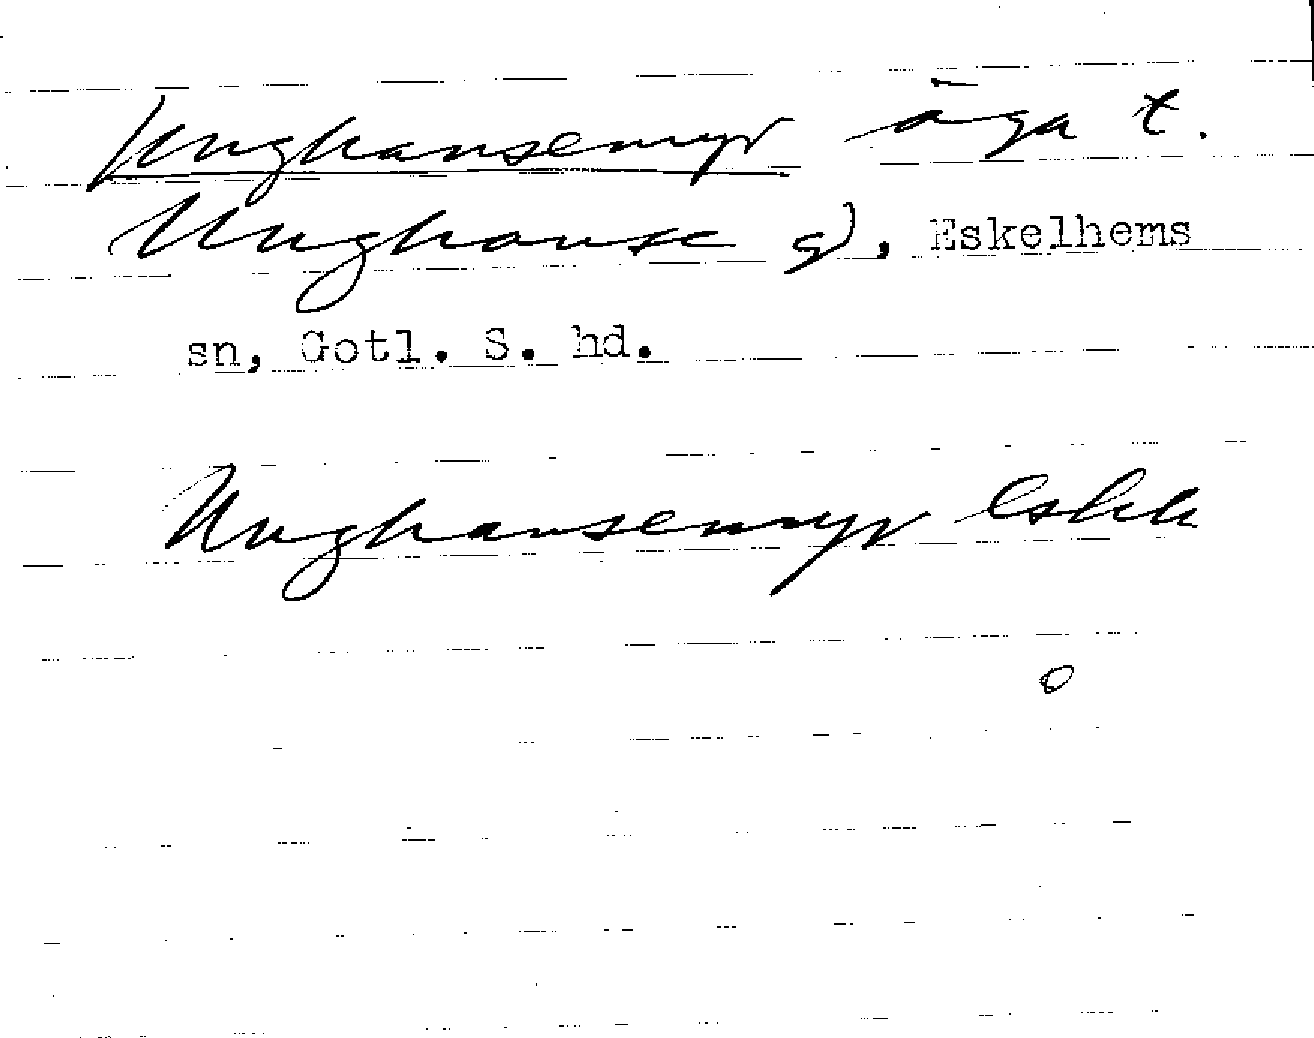 Unghansemyr äga t.
Unghanse g), Eskelhems
sn, Gotl. S. hd.
Unghansemyr Eskh